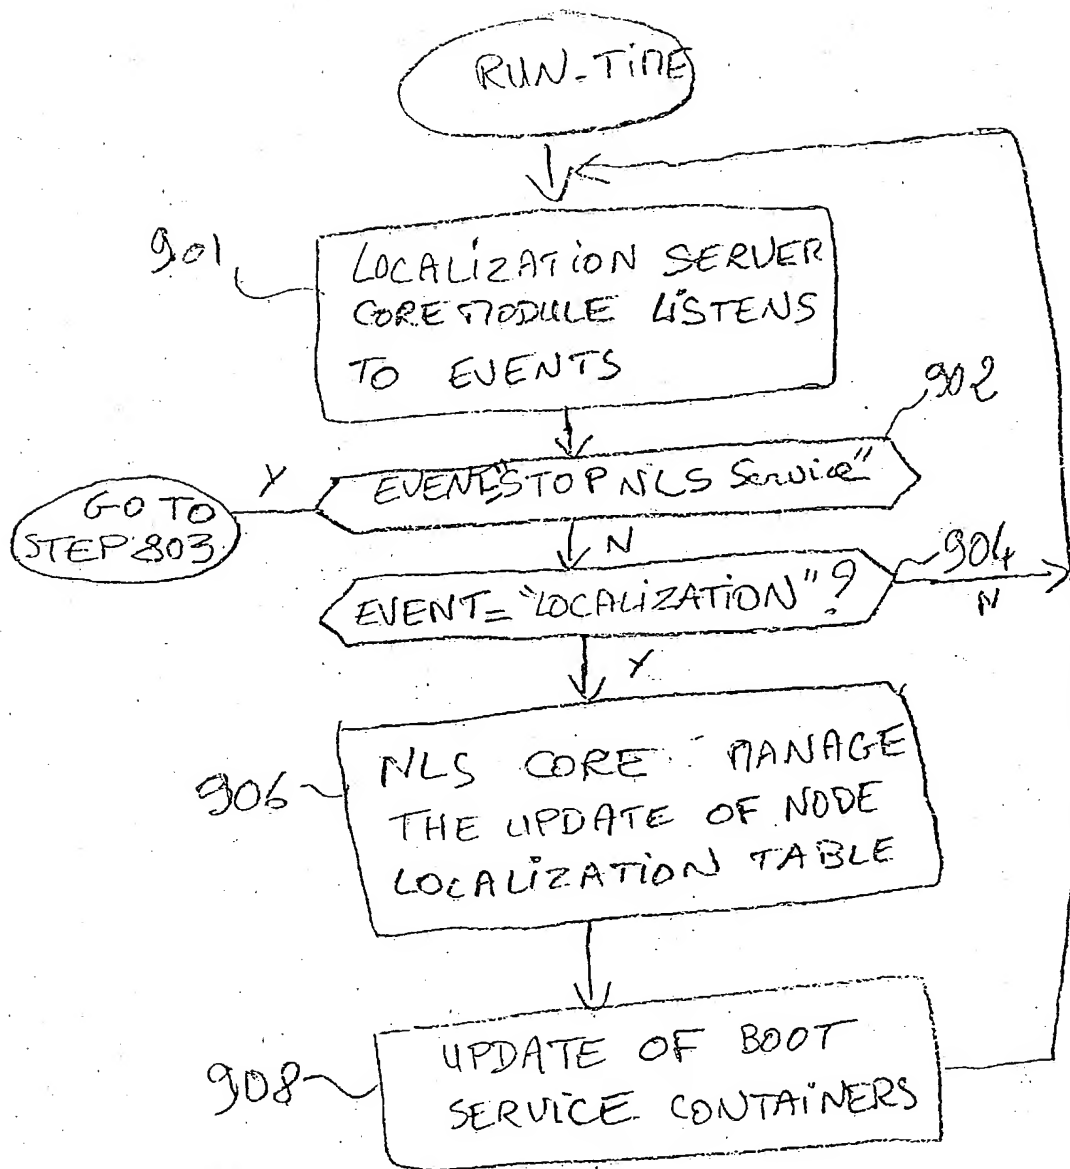 RUN-TIME
901
LOCALIZATION SERVER
CORE MODULE LISTENS
TO EVENTS
902
EVENT="STOP NLS Service"
Y
GO TO
STEP 803
N
904
EVENT="LOCALIZATION"?
N
Y
906
NLS CORE: MANAGE
THE UPDATE OF NODE
LOCALIZATION TABLE
908
UPDATE OF BOOT
SERVICE CONTAINERS